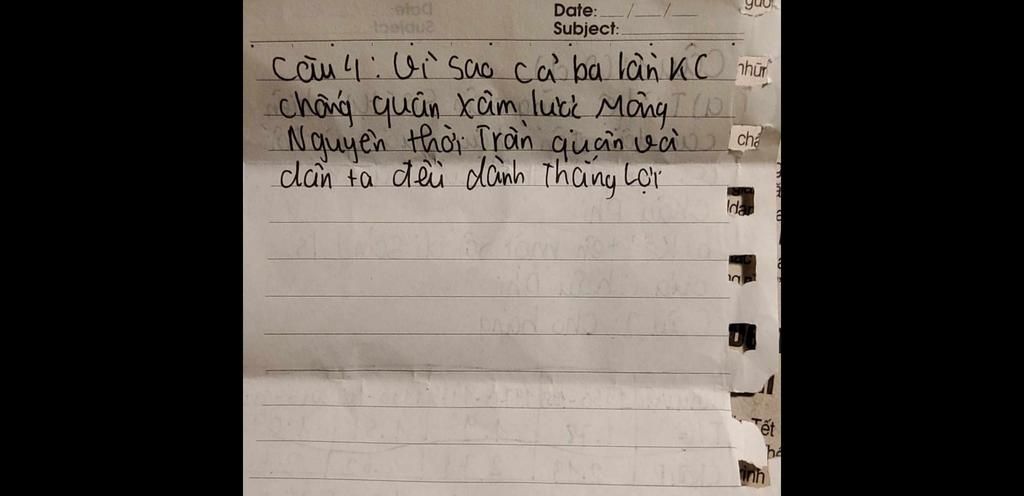 Date: __/__/__
Subject:
Câu 4: Vì sao cả ba lần KC
chống quân xâm lược Mông
Nguyên thời Trần quân và
dân ta đều dành thắng lợi
nhữn
chá
Tết